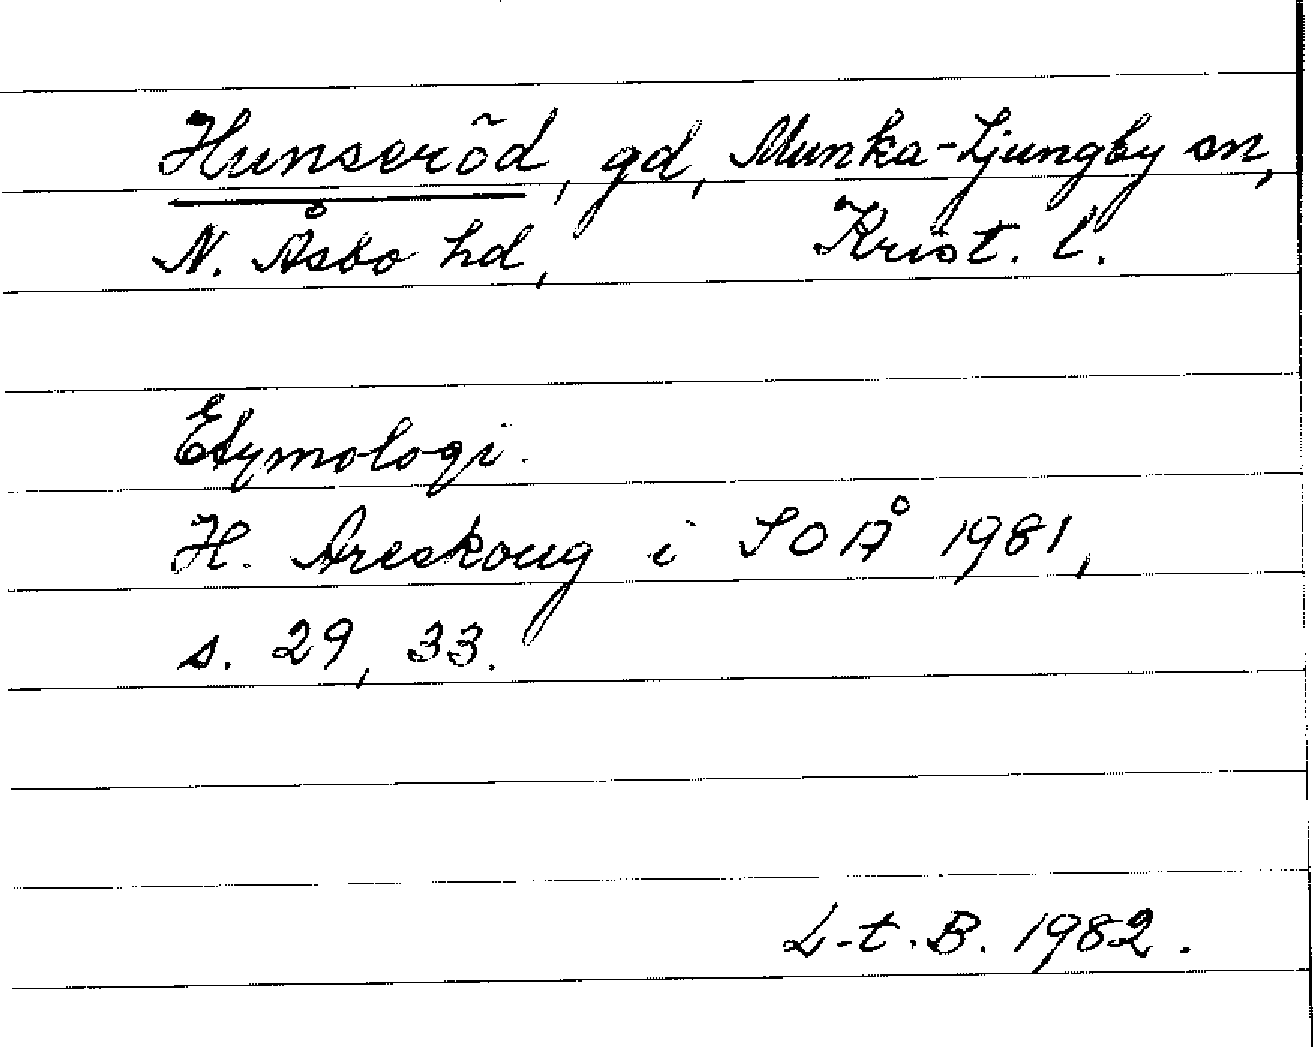 Hunseröd, gd, Munka-Ljungby sn,
N. Åsbo hd, Krist. l.
Etymologi.
H. Areskoug i SOÅ 1981,
s. 29, 33.
L-t. B. 1982.